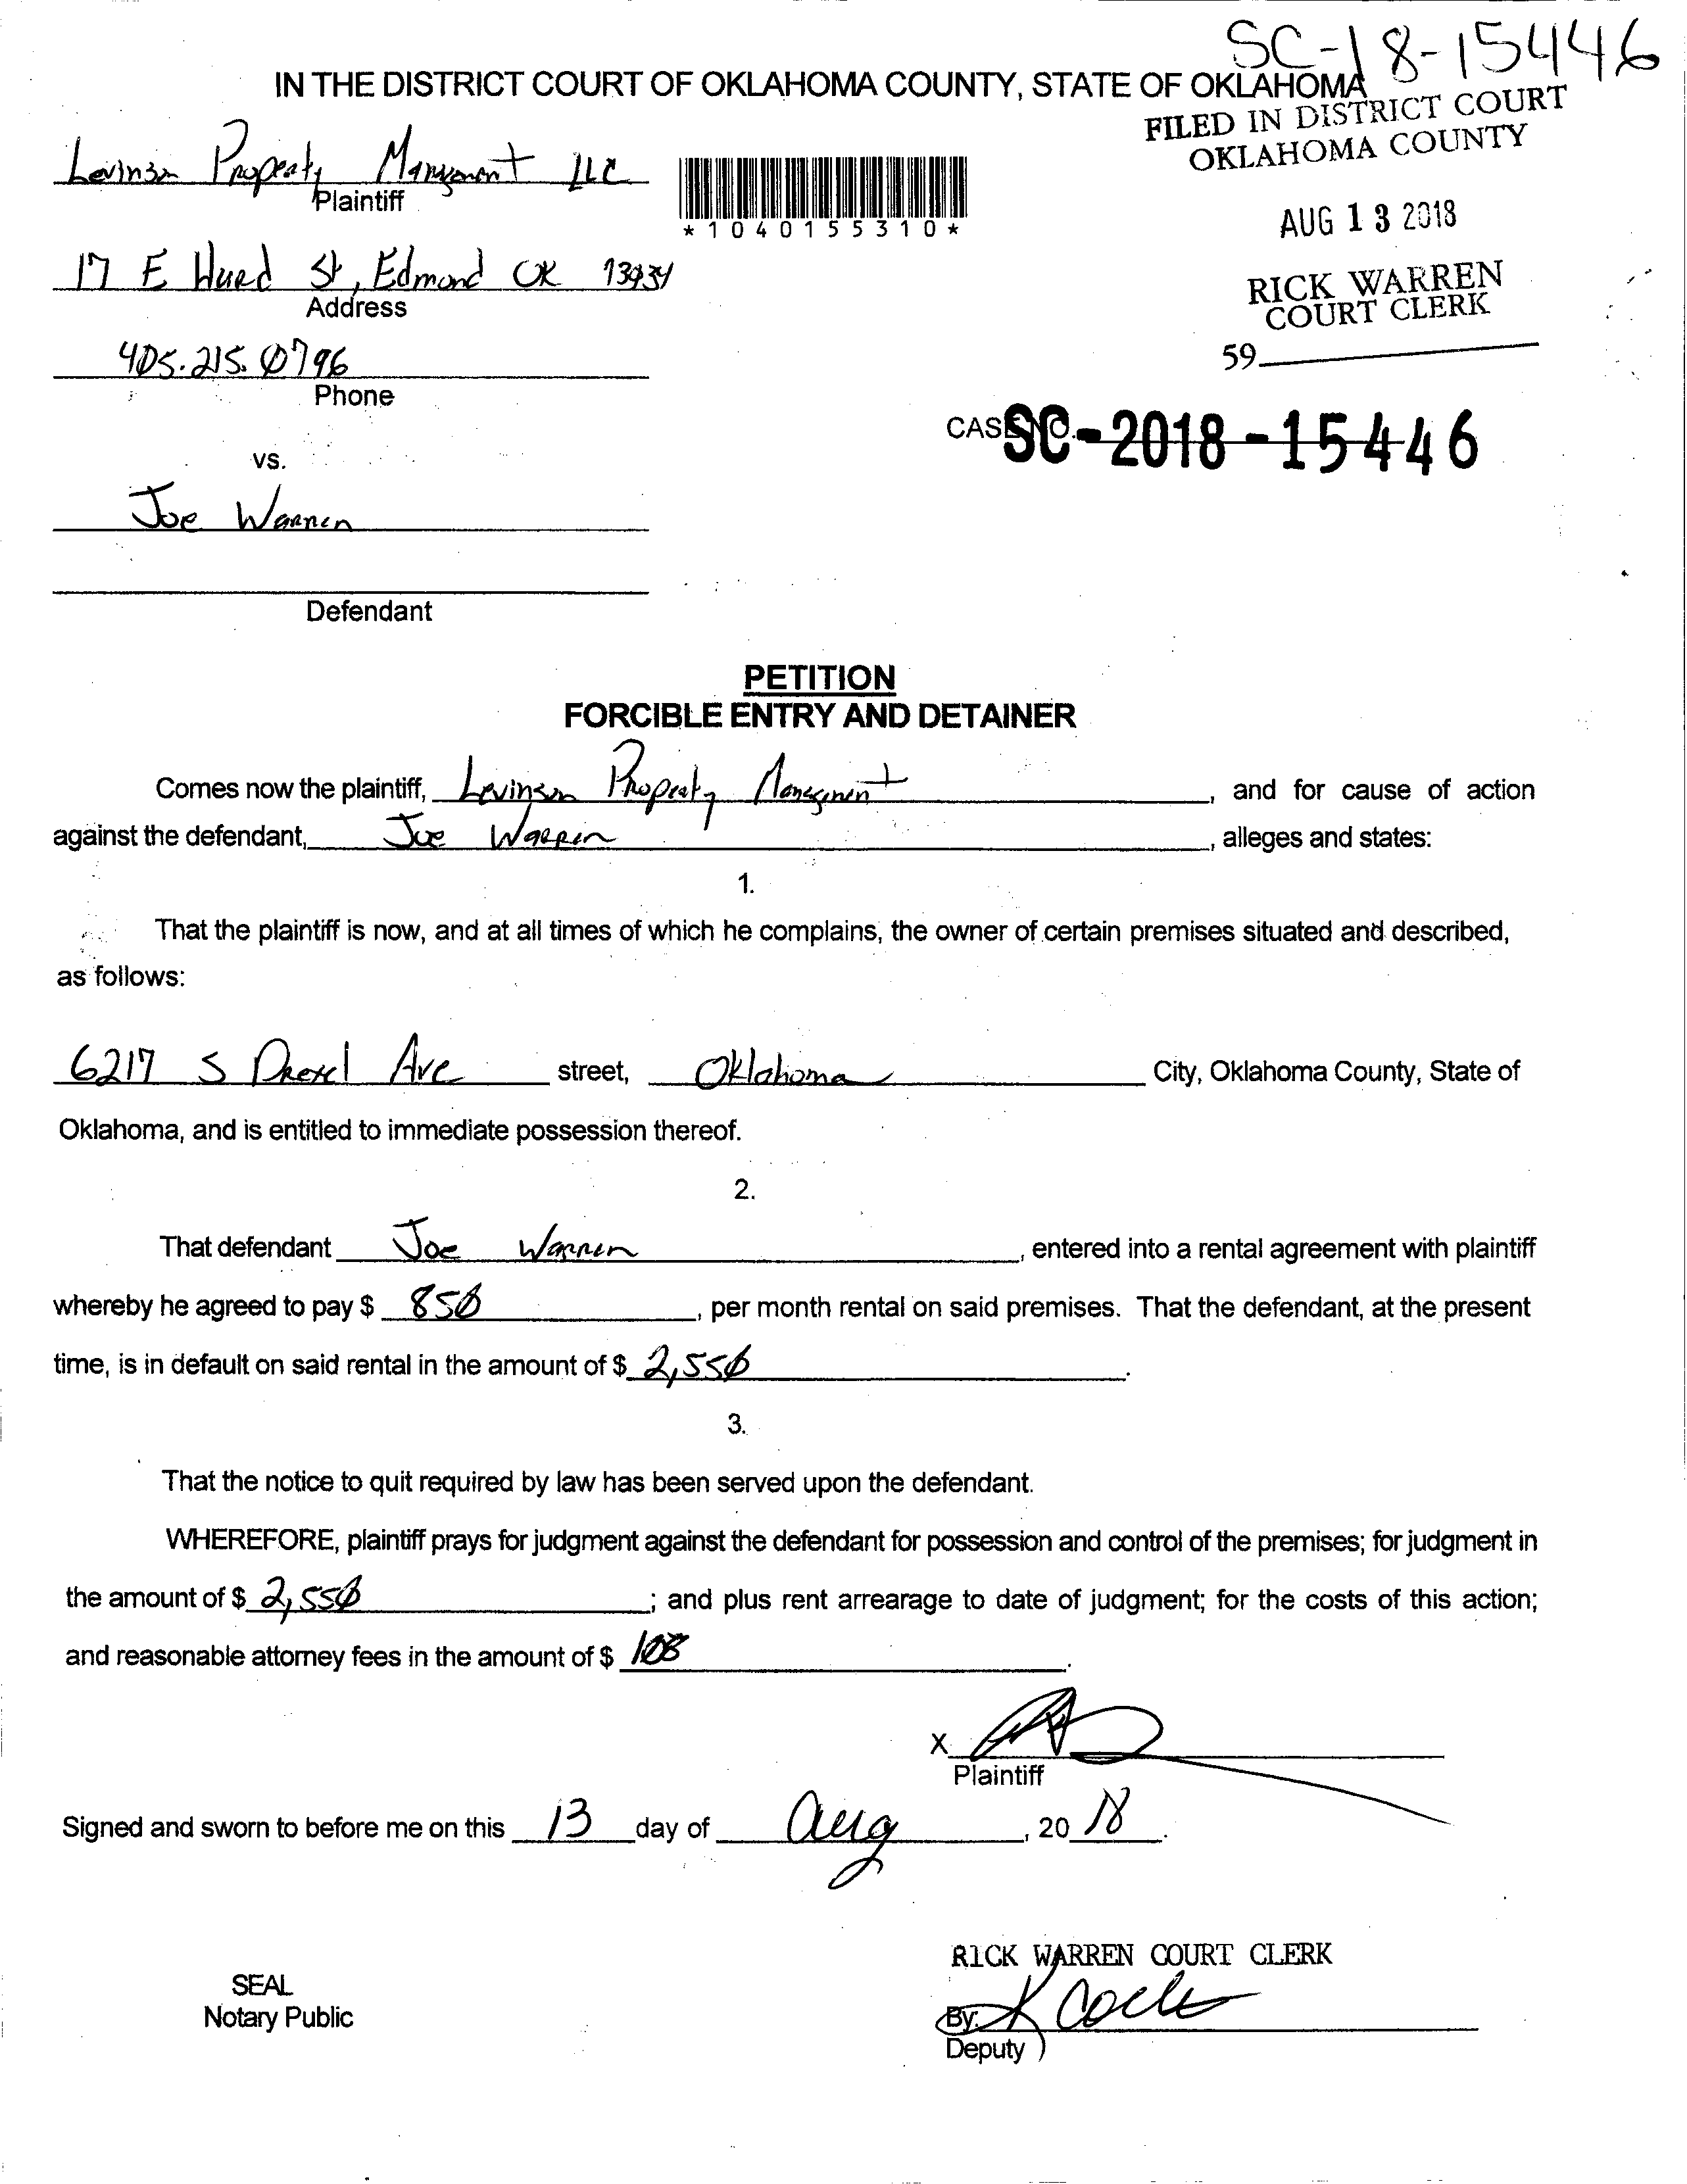 SC-18-15446
IN THE DISTRICT COURT OF OKLAHOMA COUNTY, STATE OF OKLAHOMA
FILED IN DISTRICT COURT
OKLAHOMA COUNTY
Levinson Property Managment LLC
Plaintiff
*1040155310*
AUG 13 2018
17 E Hurd St, Edmond OK
Address
RICK WARREN
COURT CLERK
59
405.215.0796
Phone
CASE NO. SC-2018-15446
vs.
Joe Warren
Defendant
PETITION
FORCIBLE ENTRY AND DETAINER
Comes now the plaintiff, Levinson Property Managment, and for cause of action
against the defendant, Joe Warren, alleges and states:
1.
That the plaintiff is now, and at all times of which he complains, the owner of certain premises situated and described,
as follows:
6217 S Drexel Ave street, Oklahoma City, Oklahoma County, State of
Oklahoma, and is entitled to immediate possession thereof.
2.
That defendant Joe Warren, entered into a rental agreement with plaintiff
whereby he agreed to pay $ 850, per month rental on said premises. That the defendant, at the present
time, is in default on said rental in the amount of $ 2,550.
3.
That the notice to quit required by law has been served upon the defendant.
WHEREFORE, plaintiff prays for judgment against the defendant for possession and control of the premises; for judgment in
the amount of $ 2,550; and plus rent arrearage to date of judgment; for the costs of this action;
and reasonable attorney fees in the amount of $ 108.
X
Plaintiff
Signed and sworn to before me on this 13 day of Aug, 20 18.
RICK WARREN COURT CLERK
SEAL
Notary Public
By:
Deputy